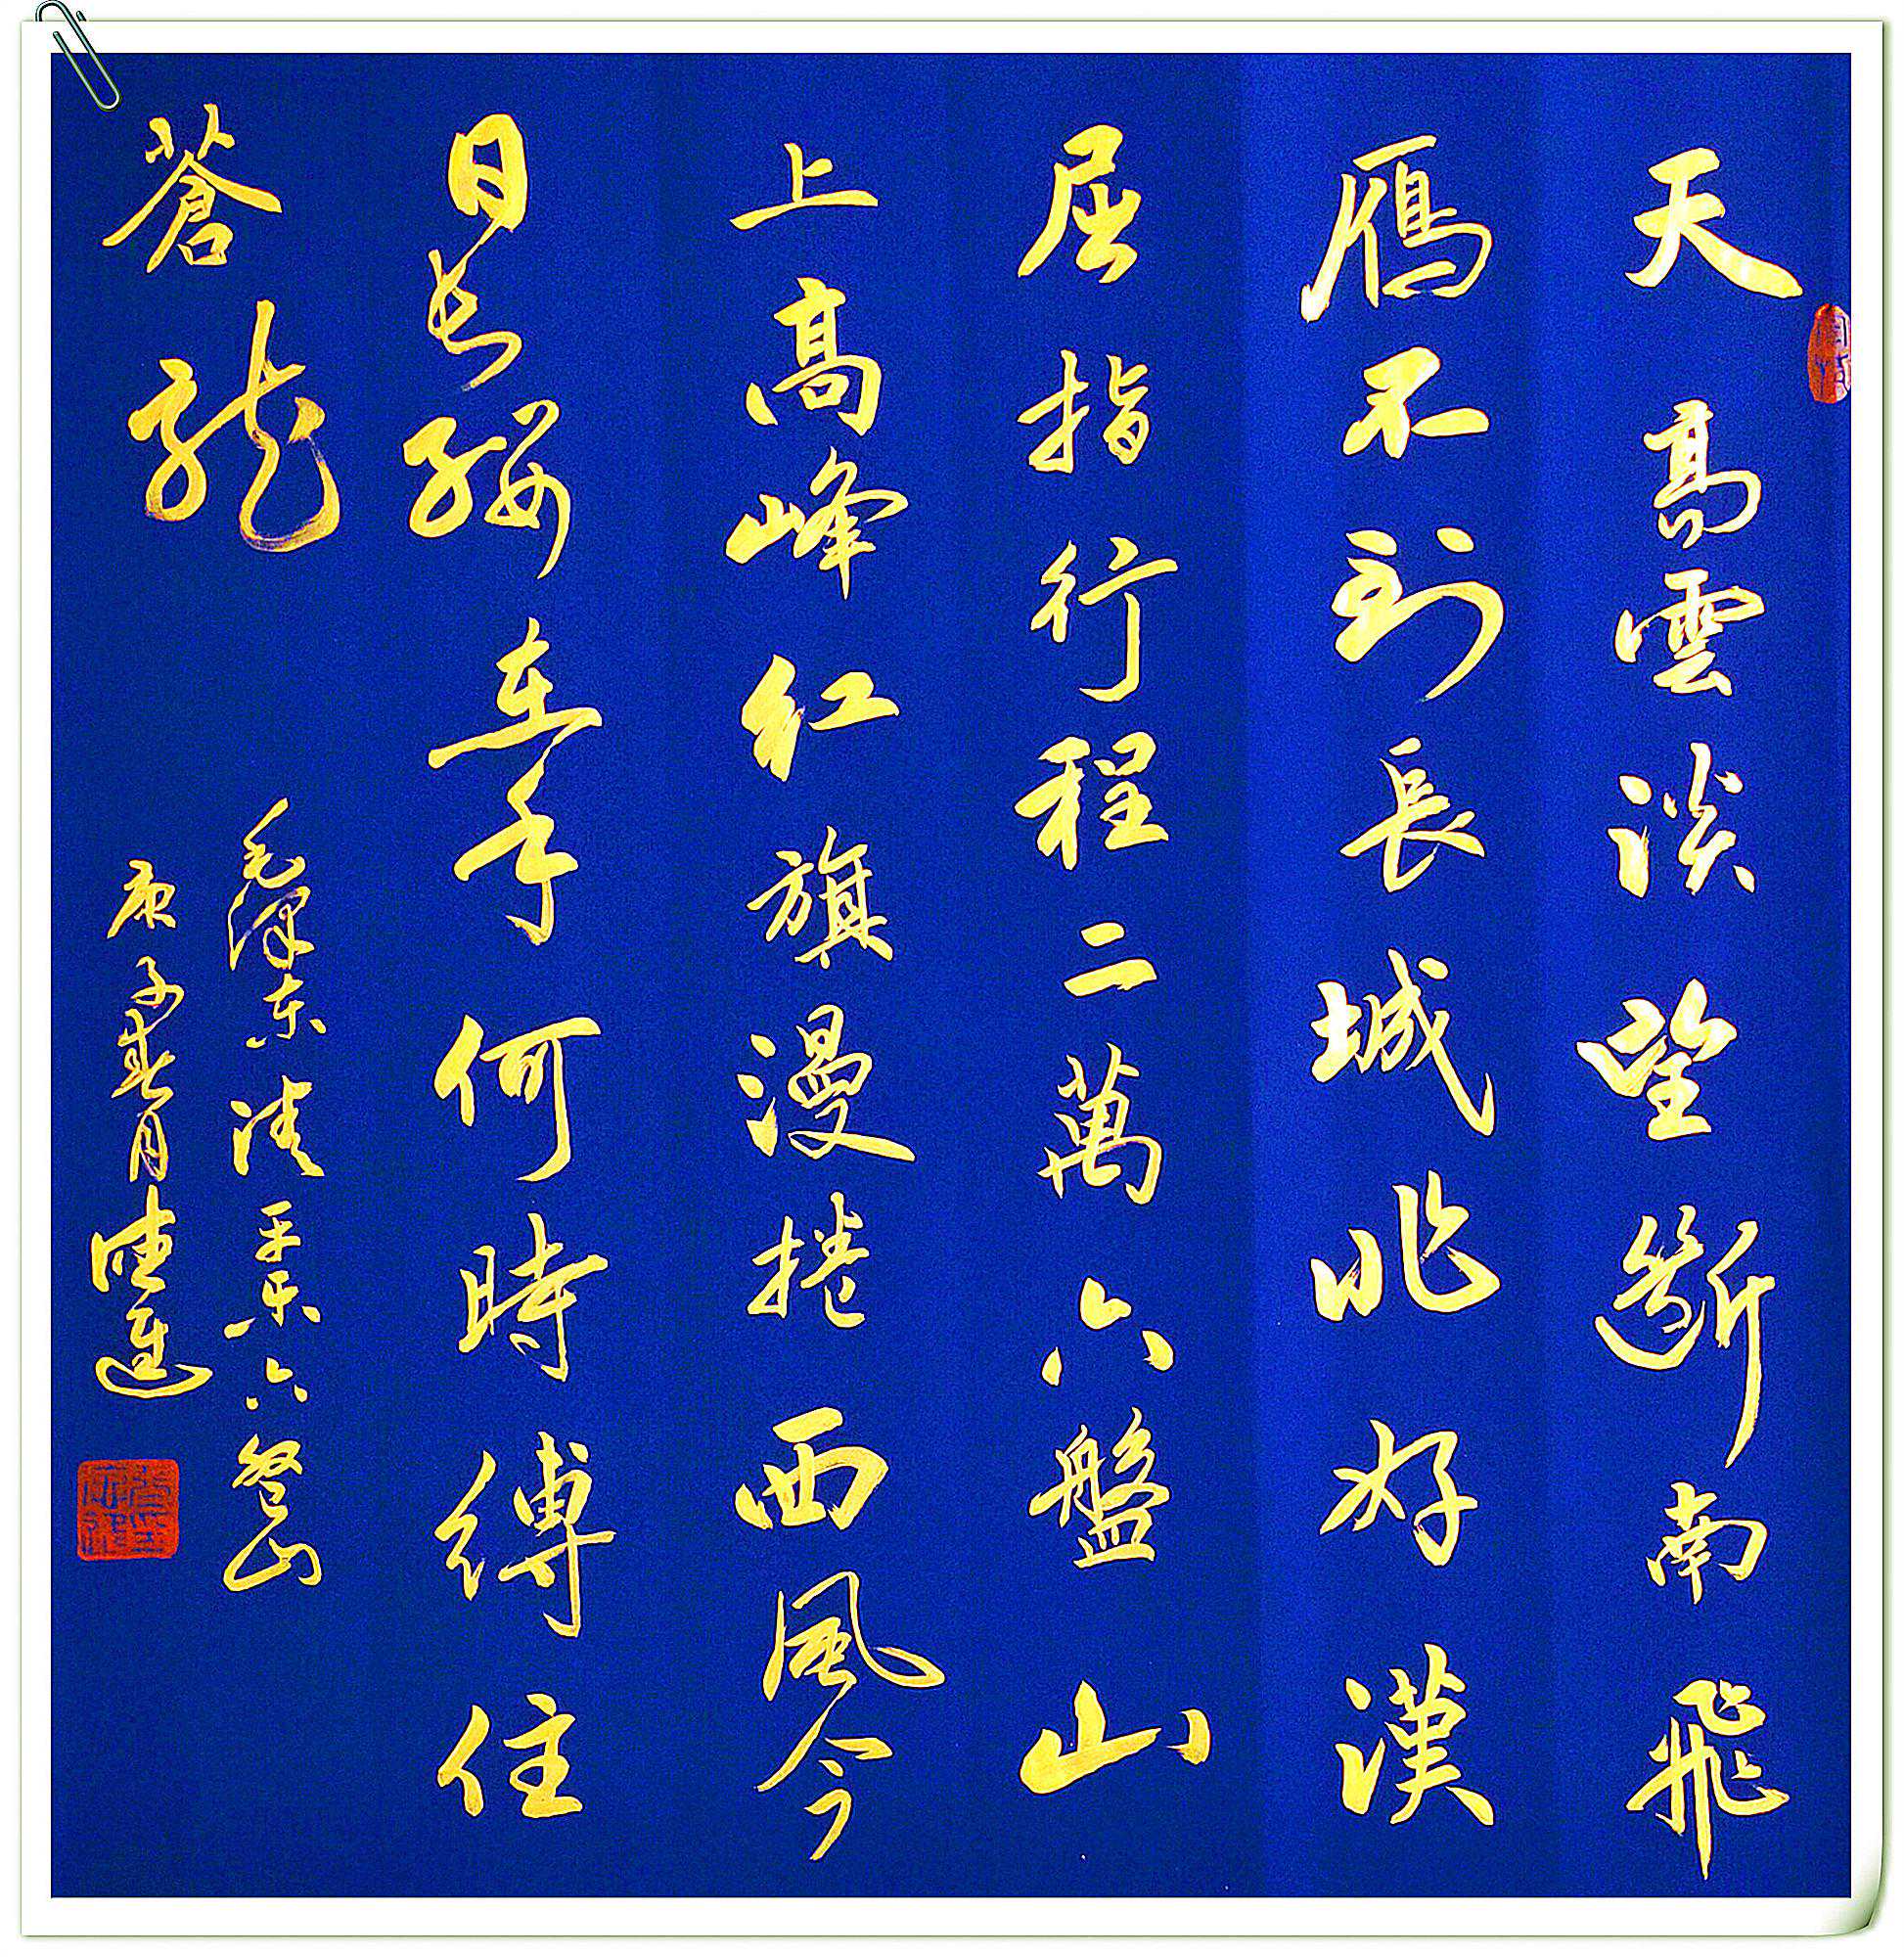 天高雲淡望斷南飛
鴈不到長城非好漢
屈指行程二萬六盤山
上高峰紅旗漫捲西風今
日長纓在手何時縛住
蒼龍
毛澤東清平樂六盤山
庚子春月